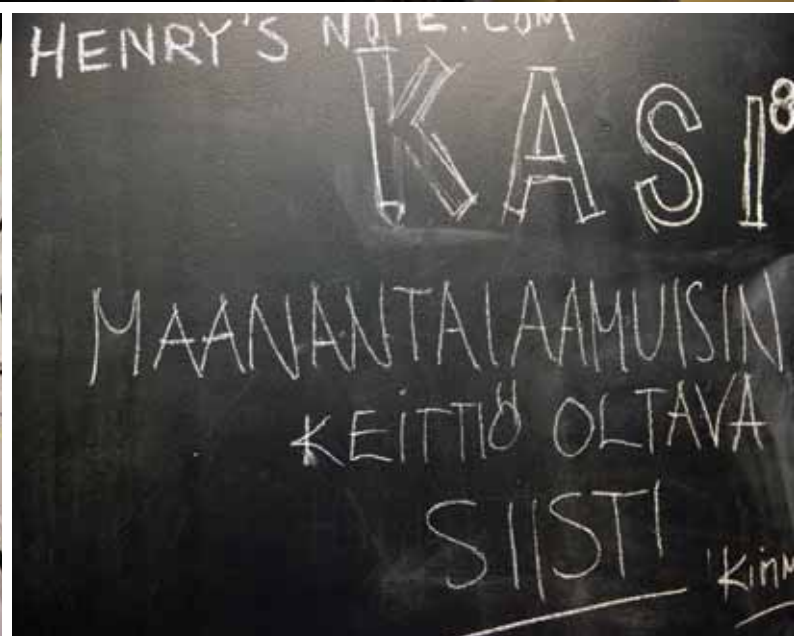 HENRY'S NOTE.COM
KASI⁸
MAANANTAIAAMUISIN
KEITTIÖ OLTAVA
SIISTI